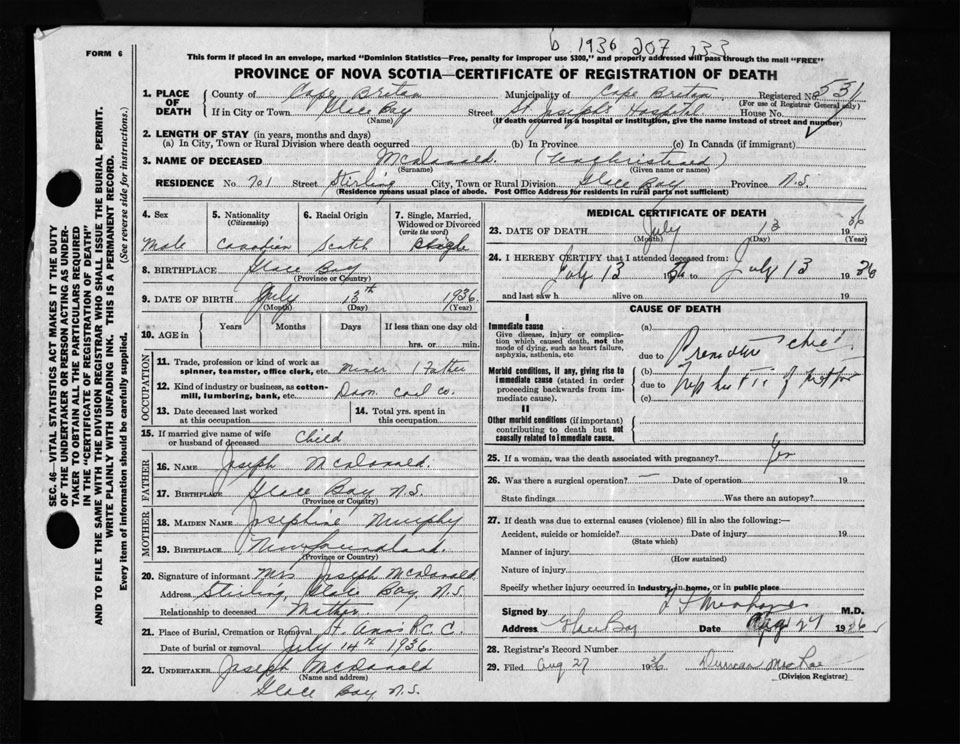 6 1936 207 233
FORM 6
This form if placed in an envelope, marked "Dominion Statistics—Free, penalty for improper use $300," and properly addressed will pass through the mail "FREE"
PROVINCE OF NOVA SCOTIA—CERTIFICATE OF REGISTRATION OF DEATH
SEC. 46—VITAL STATISTICS ACT MAKES IT THE DUTY
OF THE UNDERTAKER OR PERSON ACTING AS UNDER-
TAKER TO OBTAIN ALL THE PARTICULARS REQUIRED
IN THE "CERTIFICATE OF REGISTRATION OF DEATH"
AND TO FILE THE SAME WITH THE DIVISION REGISTRAR WHO SHALL ISSUE THE BURIAL PERMIT.
WRITE PLAINLY WITH UNFADING INK. THIS IS A PERMANENT RECORD.
Every item of information should be carefully supplied. (See reverse side for instructions.)
1. PLACE OF DEATH
County of Cape Breton Municipality of Cape Breton Registered No. 531
(For use of Registrar General only)
If in City or Town Glace Bay Street St. Joseph's Hospital House No.
(Name) (If death occurred in a hospital or institution, give the name instead of street and number)
2. LENGTH OF STAY (in years, months and days)
(a) In City, Town or Rural Division where death occurred (b) In Province (c) In Canada (if immigrant)
3. NAME OF DECEASED McDonald. (Unchristened)
(Surname) (Given name or names)
RESIDENCE No 701 Street Stirling City, Town or Rural Division Glace Bay Province N.S.
(Residence means usual place of abode. Post Office Address for residents in rural parts not sufficient)
4. Sex Male
5. Nationality (Citizenship) Canadian
6. Racial Origin Scotch
7. Single, Married, Widowed or Divorced (write the word) Single
8. BIRTHPLACE Glace Bay
(Province or Country)
9. DATE OF BIRTH July 13th 1936.
(Month) (Day) (Year)
10. AGE in Years Months Days If less than one day old
hrs. or min.
OCCUPATION
11. Trade, profession or kind of work as
spinner, teamster, office clerk, etc. miner (Father
12. Kind of industry or business, as cotton-
mill, lumbering, bank, etc. Dom. coal co.
13. Date deceased last worked at this occupation
14. Total yrs. spent in this occupation
15. If married give name of wife
or husband of deceased Child
FATHER
16. NAME Joseph McDonald.
17. BIRTHPLACE Glace Bay N.S.
(Province or Country)
MOTHER
18. MAIDEN NAME Josephine Murphy
19. BIRTHPLACE Newfoundland.
(Province or Country)
20. Signature of informant Mrs Joseph McDonald
Address Stirling, Glace Bay, N.S.
Relationship to deceased Mother
21. Place of Burial, Cremation or Removal St. Anns R.C.C.
Date of burial or removal July 14th 1936.
22. UNDERTAKER Joseph McDonald
(Name and address)
Glace Bay, N.S.
MEDICAL CERTIFICATE OF DEATH
23. DATE OF DEATH July 13 1936
(Month) (Day) (Year)
24. I HEREBY CERTIFY that I attended deceased from:
July 13 19 to July 13 1936
and last saw h alive on 19
CAUSE OF DEATH
I
Immediate cause (a)
Give disease, injury or complica-
tion which caused death, not the
mode of dying, such as heart failure,
asphyxia, asthenia, etc
due to Premature child
Morbid conditions, if any, giving rise to
immediate cause (stated in order
proceeding backwards from im-
mediate cause).
(b)
due to of mother
(c)
II
Other morbid conditions (if important)
contributing to death but not
causally related to immediate cause.
25. If a woman, was the death associated with pregnancy? Yes
26. Was there a surgical operation? Date of operation 19
State findings Was there an autopsy?
27. If death was due to external causes (violence) fill in also the following:—
Accident, suicide or homicide? Date of injury 19
(State which)
Manner of injury
(How sustained)
Nature of injury
Specify whether injury occurred in industry, in home, or in public place
Signed by M.D.
Address Glace Bay Date Aug 27 1936
28. Registrar's Record Number
29. Filed Aug 27 1936 Duncan MacRae
(Division Registrar)